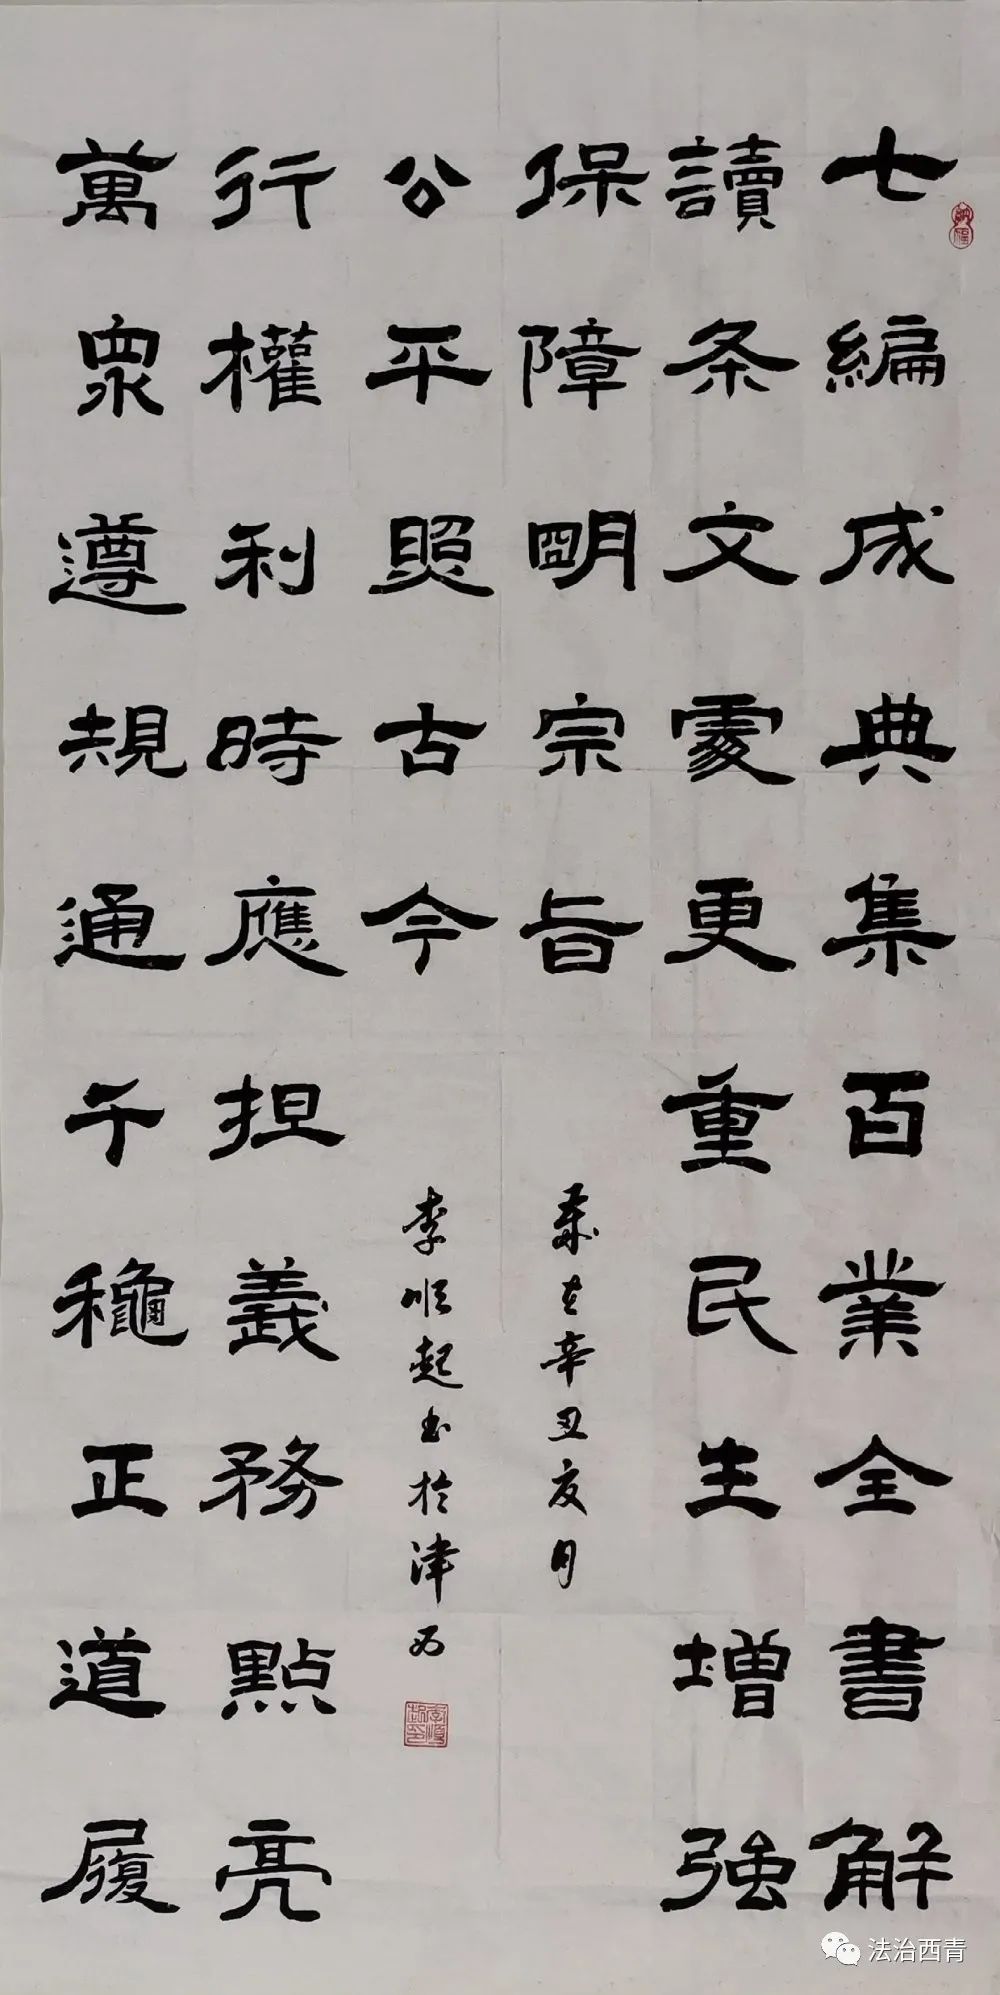 七編成典集百業全書解
讀条文處更重民生增強
保障明宗旨
歲在辛丑夏月
萬眾遵規通千穐正道履
行權利時應担義務點亮
公平照古今
李順起書於津西
李順起印
法治西青